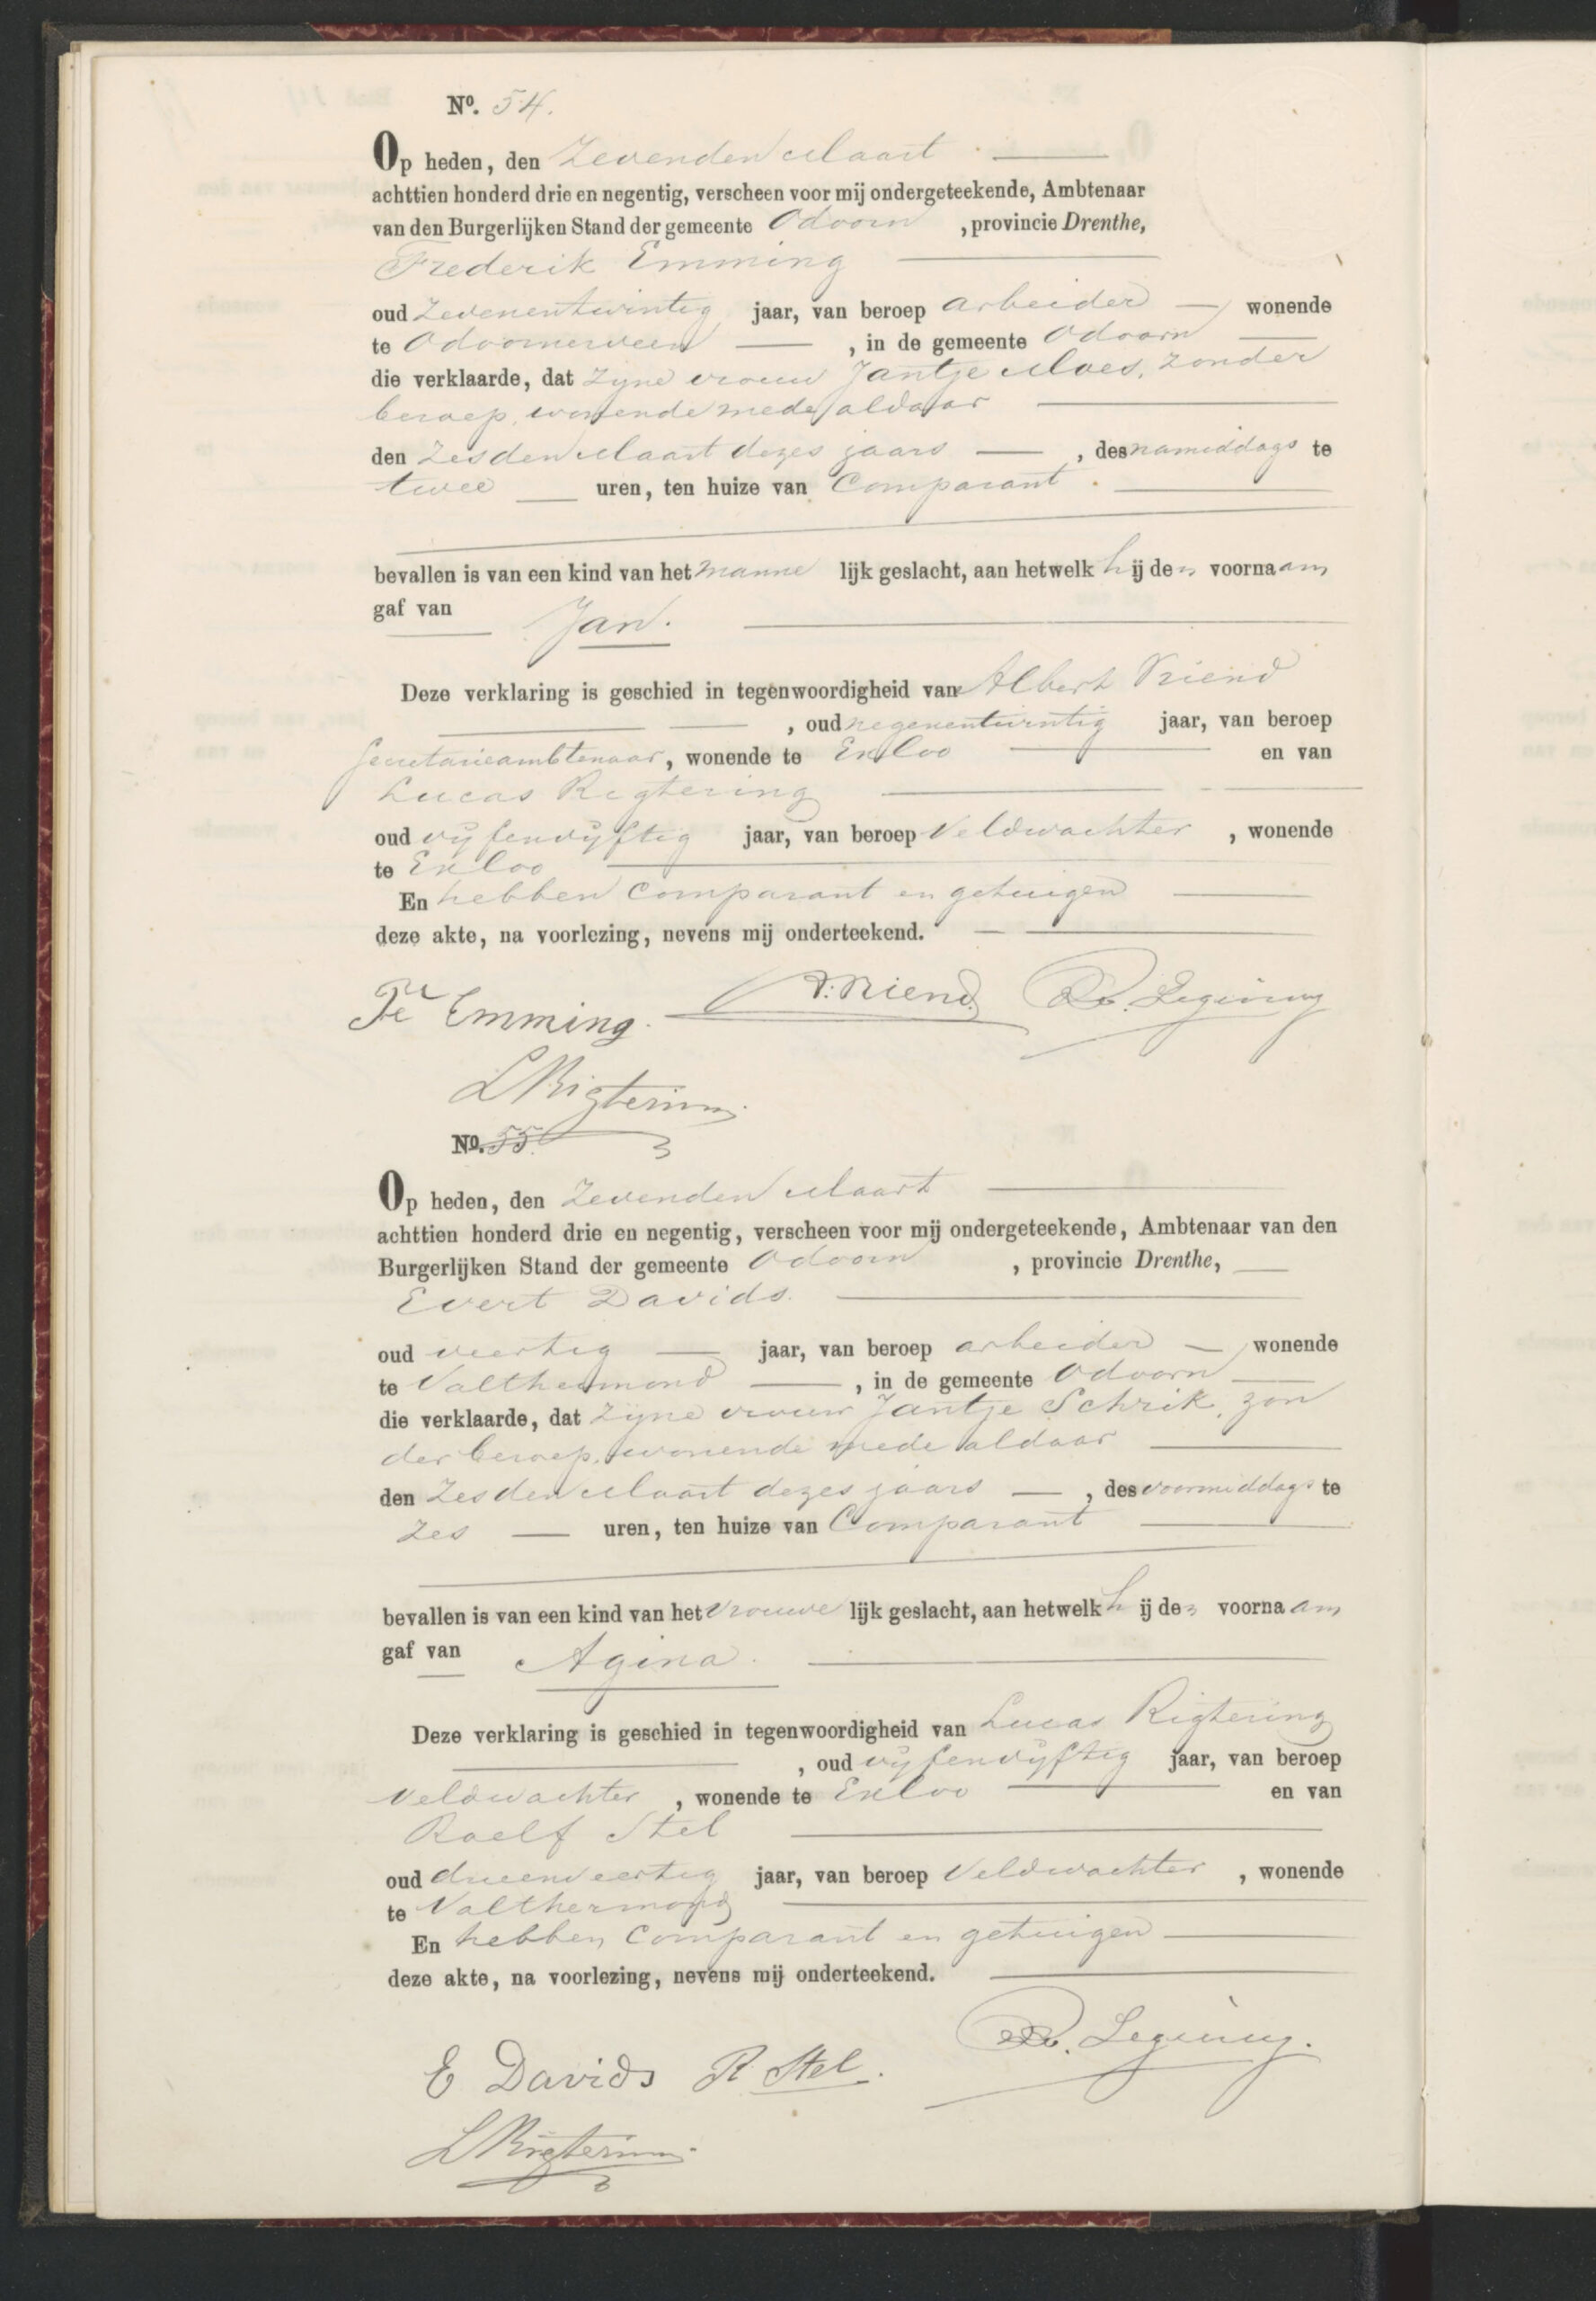 No. 54.
Op heden, den Zevenden Maart
achttien honderd drie en negentig, verscheen voor mij ondergeteekende, Ambtenaar
van den Burgerlijken Stand der gemeente Odoorn , provincie Drenthe,
Frederik Emming
oud Zevenentwintig jaar, van beroep arbeider wonende
te Odoornerveen , in de gemeente Odoorn
die verklaarde, dat zijne vrouw Jantje Moes, zonder
beroep, wonende mede aldaar
den Zesden Maart dezes jaars , des namiddags te
twee uren, ten huize van Comparant.
bevallen is van een kind van het manne lijk geslacht, aan hetwelk hij den voornaam
gaf van Jan.
Deze verklaring is geschied in tegenwoordigheid van Albert Vriend
, oud negenentwintig jaar, van beroep
Secretarieambtenaar, wonende te Exloo en van
Lucas Rigtering
oud vijfenvijftig jaar, van beroep Veldwachter , wonende
te Exloo
En hebben Comparant en getuigen
deze akte, na voorlezing, nevens mij onderteekend.
Fe Emming. AVriend
L Rigtering
No. 55.
Op heden, den Zevenden Maart
achttien honderd drie en negentig, verscheen voor mij ondergeteekende, Ambtenaar van den
Burgerlijken Stand der gemeente Odoorn , provincie Drenthe,
Evert Davids.
oud veertig jaar, van beroep arbeider wonende
te Valthermond , in de gemeente Odoorn
die verklaarde, dat zijne vrouw Jantje Schrik, zon
der beroep, wonende mede aldaar
den Zesden Maart dezes jaars , des voormiddags te
zes uren, ten huize van Comparant
bevallen is van een kind van het vrouwe lijk geslacht, aan hetwelk hij den voornaam
gaf van Agina.
Deze verklaring is geschied in tegenwoordigheid van Lucas Rigtering
, oud vijfenvijftig jaar, van beroep
veldwachter , wonende te Exloo en van
Roelf Stel
oud drieenveertig jaar, van beroep Veldwachter , wonende
te Valthermond
En hebben Comparant en getuigen
deze akte, na voorlezing, nevens mij onderteekend.
E Davids R Stel.
L Rigtering